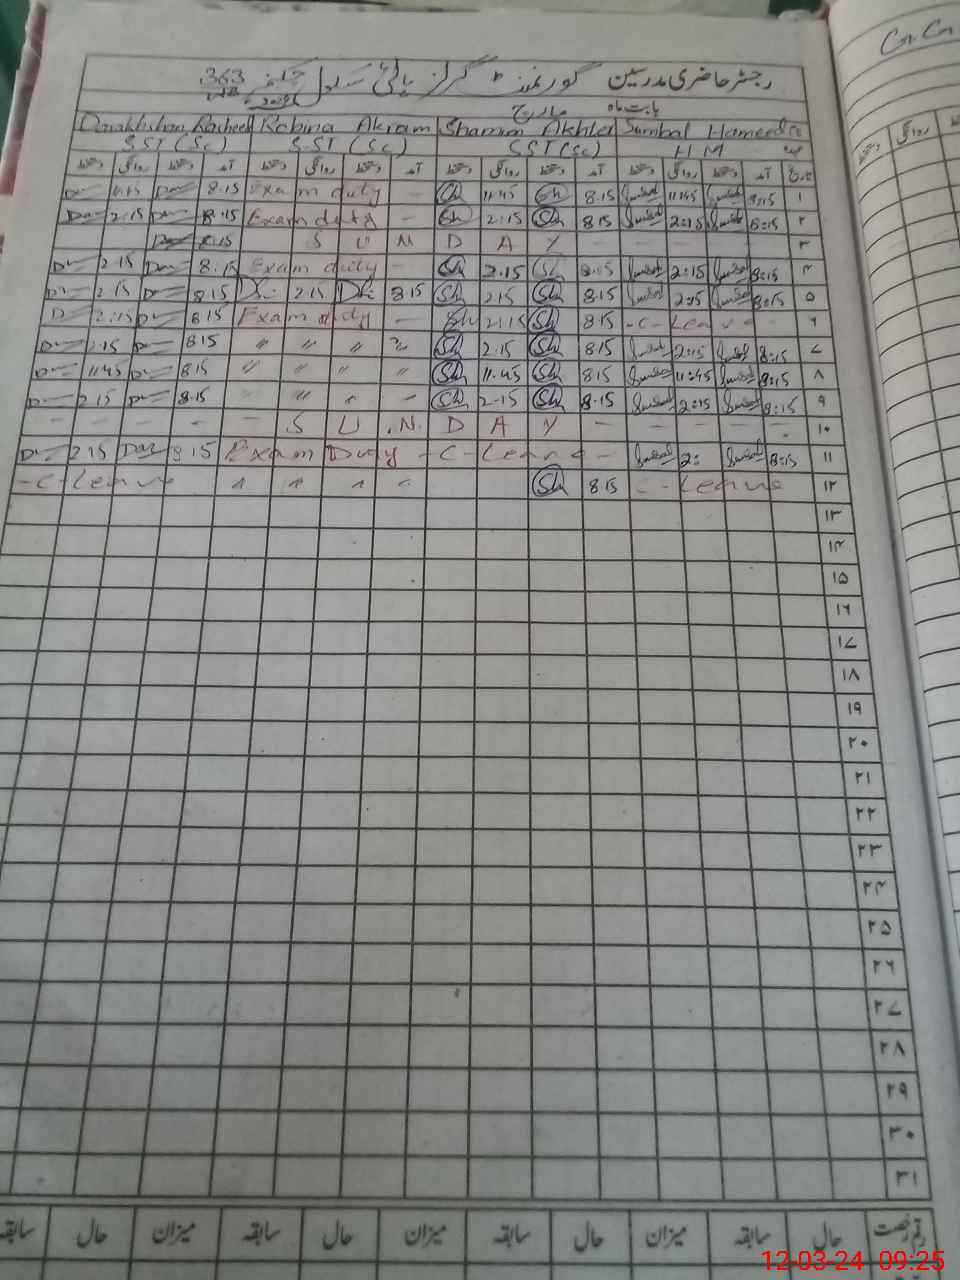 رجسٹر حاضری مدرسین گورنمنٹ گرلز ہائی سکول 363 WB
بابت ماہ مارچ
Rasheed Robina Akram Shamim Akhter Sumbal Hameed
SST (Sc) SST (Sc) SST (Sc) H M
دستخط روانگی دستخط آمد دستخط روانگی دستخط آمد دستخط روانگی دستخط آمد دستخط روانگی دستخط آمد تاریخ
11.15 8.15 Exam duty - Sh 11.45 Sh 8.15 Sumbal 11:45 Sumbal 8:15 ۱
2.15 8.15 Exam duty - Sh 2:15 Sh 8.15 Sumbal 2:15 Sumbal 8:15 ۲
8.15 S U N D A Y - - - - ۳
2.15 8.15 Exam duty - Sh 2.15 Sh 8.15 Sumbal 2:15 Sumbal 8:15 ۴
2.15 8.15 2.15 8.15 Sh 2.15 Sh 8.15 Sumbal 2:15 Sumbal 8:15 ۵
2:15 8.15 Exam duty - Sh 2:15 Sh 8.15 -C- Leave - ۶
2.15 8.15 〃 〃 〃 〃 Sh 2.15 Sh 8.15 Sumbal 2:15 Sumbal 8:15 ۷
11.45 8.15 〃 〃 〃 〃 Sh 11.45 Sh 8.15 Sumbal 11:45 Sumbal 8:15 ۸
2.15 8.15 〃 〃 〃 〃 Sh 2.15 Sh 8.15 Sumbal 2:15 Sumbal 8:15 ۹
- - - - - S U N D A Y - - - - ۱۰
2.15 8.15 Exam Duty -C- Leave - Sumbal 2: Sumbal 8:15 ۱۱
-C- Leave 〃 〃 〃 〃 Sh 8.15 -C- Leave ۱۲
۱۳
۱۴
۱۵
۱۶
۱۷
۱۸
۱۹
۲۰
۲۱
۲۲
۲۳
۲۴
۲۵
۲۶
۲۷
۲۸
۲۹
۳۰
۳۱
رقم رخصت حال سابقہ میزان حال سابقہ میزان حال سابقہ میزان حال سابقہ
12-03-24 09:25